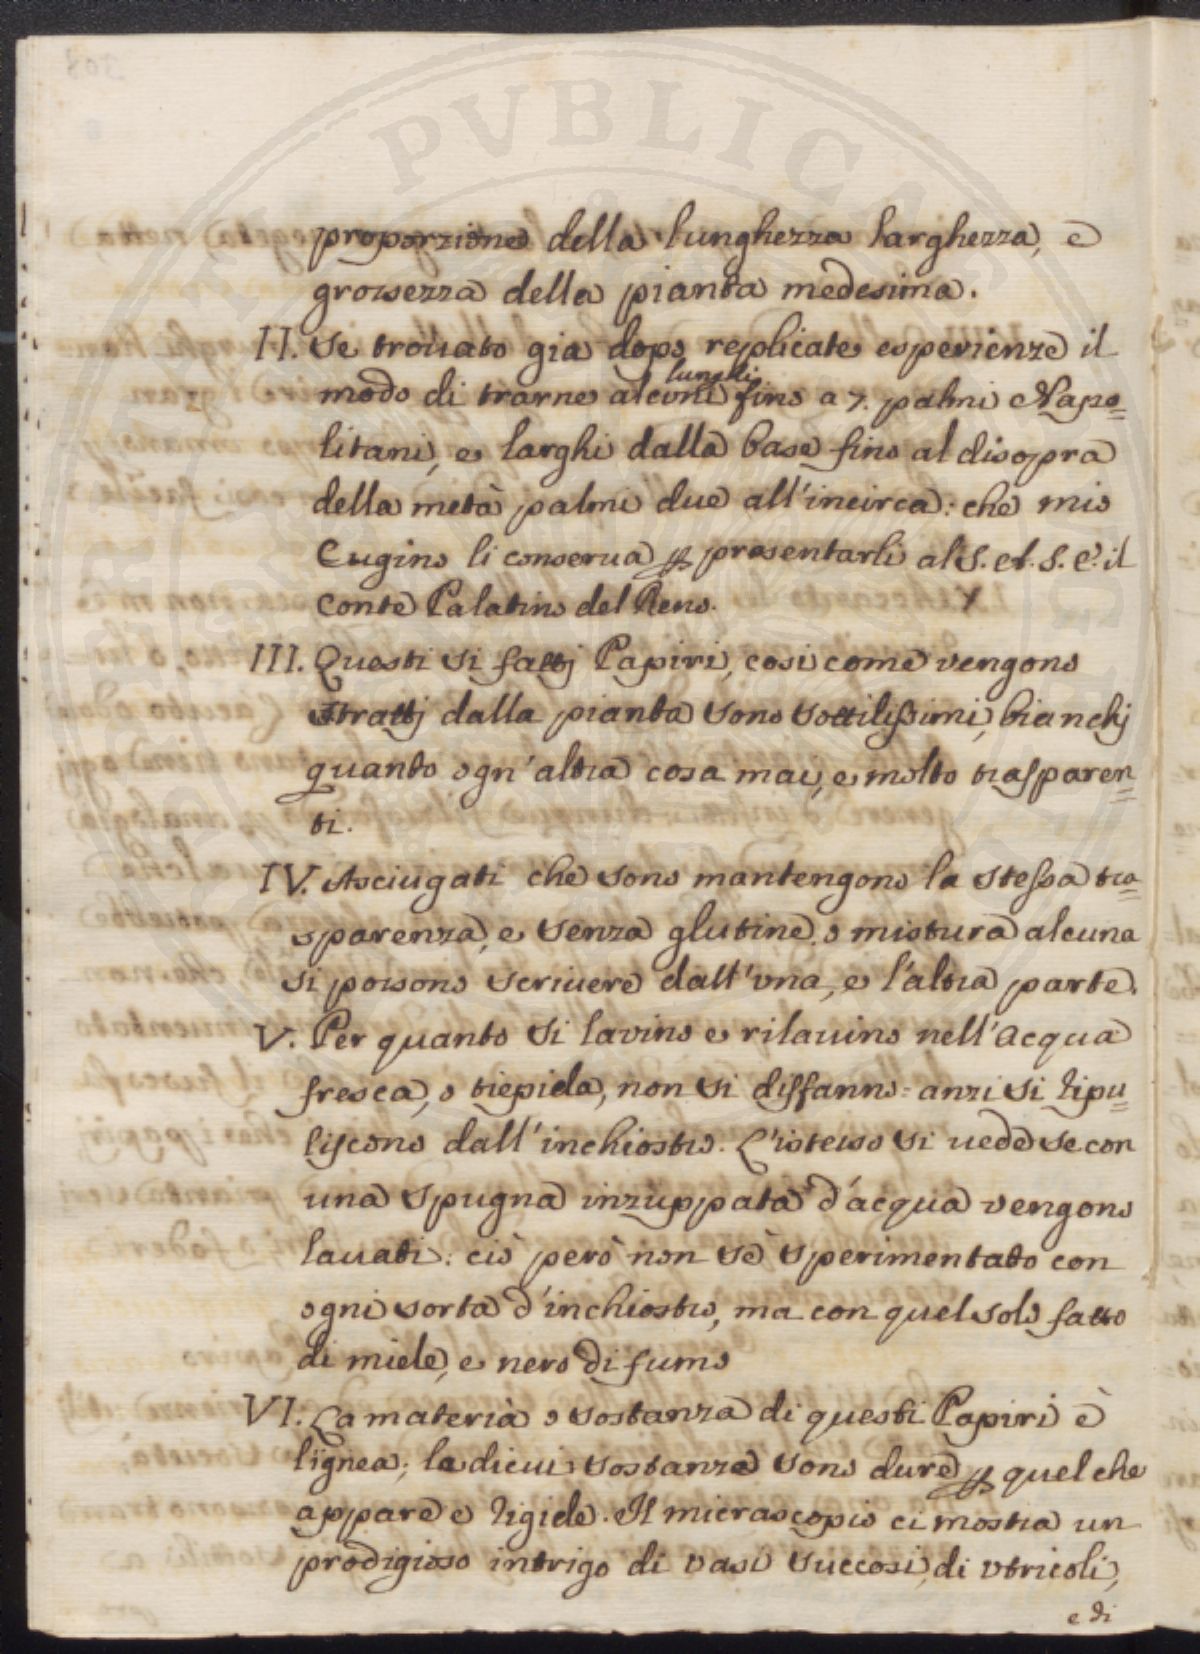 proporzione della lunghezza larghezza, e
grossezza della pianta medesima.
II. Se trouato gia dopo replicate esperienze il
modo di trarne alcuni lunghi fino a 7. palmi Napo=
litani, e larghi dalla base fino al disopra
della metà palmi due all'incirca: che mio
Cugino li conserua per presentarli al S. el. S. e. il
Conte Palatino del Reno.
III. Questi si fattj Papiri, cosi come vengono
strattj dalla pianta sono sottilissimi, bianchj
quanto ogn'altra cosa mai, e molto trasparen=
ti.
IV. Asciugati che sono mantengono la stessa tra=
sparenza, e senza glutine, o mistura alcuna
si possono scriuere dall'vna, e l'altra parte.
V. Per quanto si lavino e rilauino nell'acqua
fresca, o tiepida, non si disfanno: anzi si ripu=
liscono dall'inchiostro. L'istesso si uede se con
una spugna inzuppata d'acqua vengono
lauati: ciò però non sè sperimentato con
ogni sorta d'inchiostro, ma con quel solo fatto
di miele, e nero di fumo
VI. La materia o sostanza di questi Papiri è
lignea; la dicui sostanza sono dure per quel che
appare e rigide. Il micrascopio ci mostra un
prodigioso intrigo di vasi succosi, di vtricoli,
e di